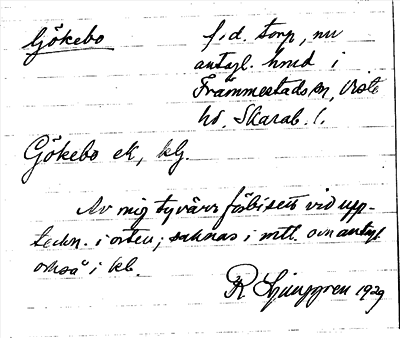 Gökebo
f.d. torp, nu
antagl. hmd i
Främmestads sn, Viste
hd. Skarab. l.
Gökebo ek, klg.
Av mig tyvärr förbisett vid upp-
teckn. i orten; saknas i mtl. och antagl.
också i kb.
R Ljunggren 1929